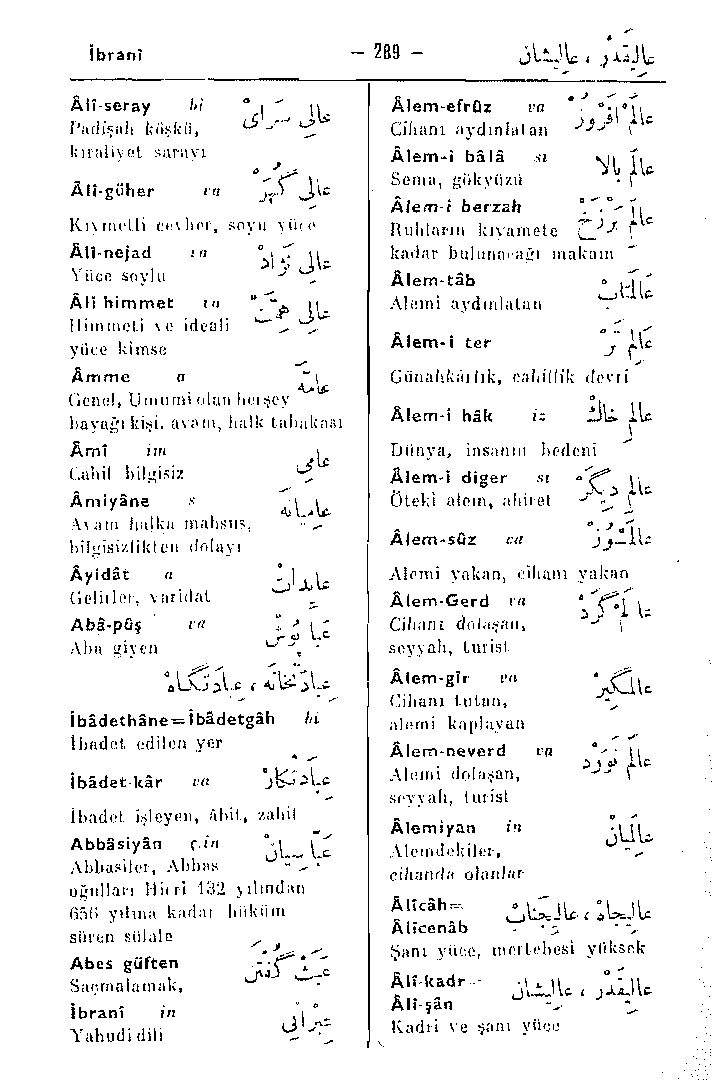 İbranî — 289 — عالِيقَدْر ، عاليشان
Âlî-seray bi عالى سَرَاىْ
Padişah köşkü,
kıraliyet sarayı
Âlî-güher va عالى گُهَرْ
Kıymetli cevher, soyu yüce
Âlî-nejad ın عالى نَژادْ
Yüce soylu
Âlî himmet ın عالى هِمَّتْ
Himmeti ve ideali
yüce kimse
Âmme a عامَّه
Genel, Umumi olan herşey
bayağı kişi, avam, halk tabakası
Âmî im عامى
Cahil bilgisiz
Âmiyâne s عاميانَه
Avam halka mahsus,
bilgisizlikten dolayı
Âyidât a عايِداتْ
Gelirler, varidat
Abâ-pûş va عَبا پُوشْ
Aba giyen
عِبادَتْخانَه ، عِبادَتْگاهْ
İbâdethâne=İbâdetgâh bi
İbadet edilen yer
İbâdet-kâr va عِبادَتْكارْ
İbadet işleyen, Âbit, zahit
Abbâsiyân ç.in عَبّاسِيانْ
Abbasiler, Abbas
oğulları Hicrî 132 yılından
656 yılına kadar hüküm
süren sülale
Abes güften عَبَثْ گُفْتَنْ
Saçmalamak,
İbranî in عِبْرانى
Yahudi dili
Âlem-efrûz va عالَمْ اَفْرُوزْ
Cihanı aydınlatan
Âlem-i bâlâ sı عالَمِ بالا
Sema, gökyüzü
Âlem-i berzah عالَمِ بَرْزَخْ
Ruhların kıyamete
kadar bulunacağı makam
Âlem-tâb عالَمْتابْ
Alemi aydınlatan
Âlem-i ter عالَمِ تَرْ
Günahkârlık, cahillik devri
Âlem-i hâk iz عالَمِ خاكْ
Dünya, insanın bedeni
Âlem-i diger sı عالَمِ ديگَرْ
Öteki alem, ahiret
Âlem-sûz va عالَمْسُوزْ
Alemi yakan, cihanı yakan
Âlem-Gerd va عالَمْ گَرْدْ
Cihanı dolaşan,
seyyah, turist
Âlem-gîr va عالَمْگيرْ
Cihanı tutan,
alemi kaplayan
Âlem-neverd va عالَمْ نَوَرْدْ
Alemi dolaşan,
seyyah, turist
Âlemiyan in عالَمِيانْ
Alemdekiler,
cihanda olanlar
Âlîcâh= عاليجاهْ ، عاليجَنابْ
Âlîcenâb
Şanı yüce, mertebesi yüksek
Âlî-kadr= عاليقَدْرْ ، عاليشانْ
Âlî-şân
Kadri ve şanı yüce